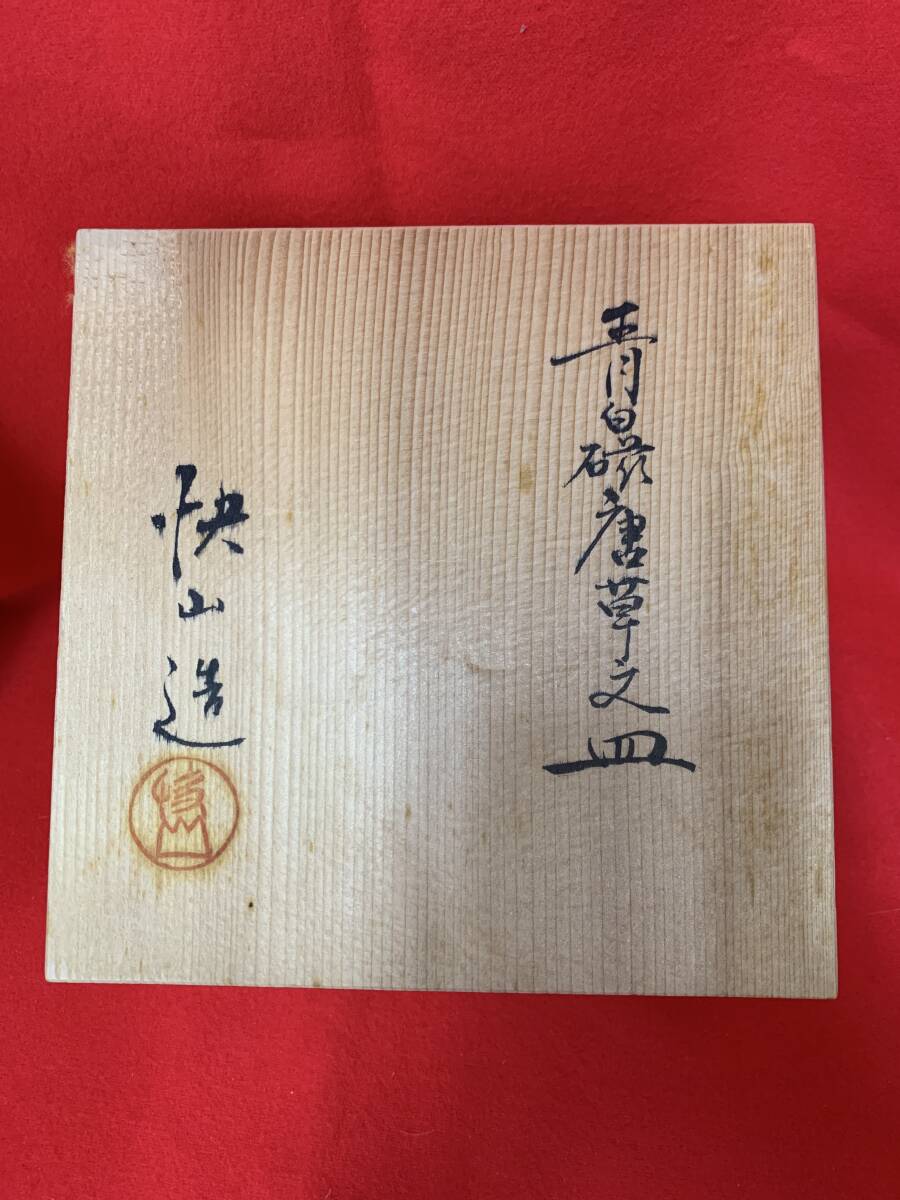 青白磁唐草文皿
快山造